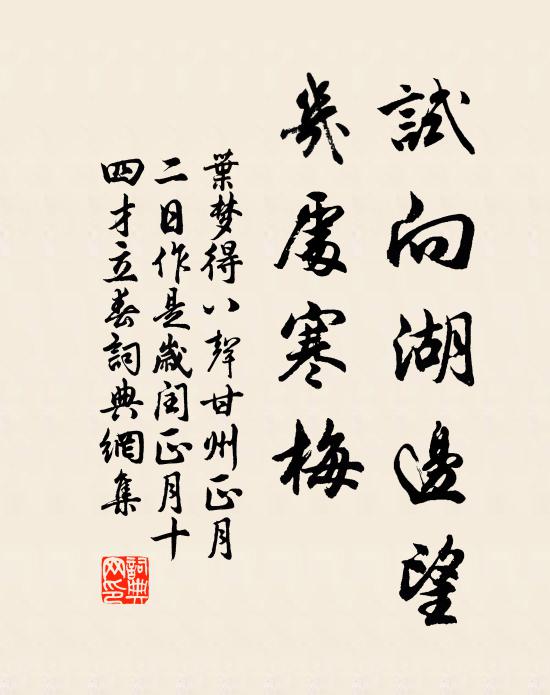 試向湖邊望
幾處寒梅
葉梦得八聲甘州正月
二日作是歲閏正月十
四才立春詞典網集
詞典网印